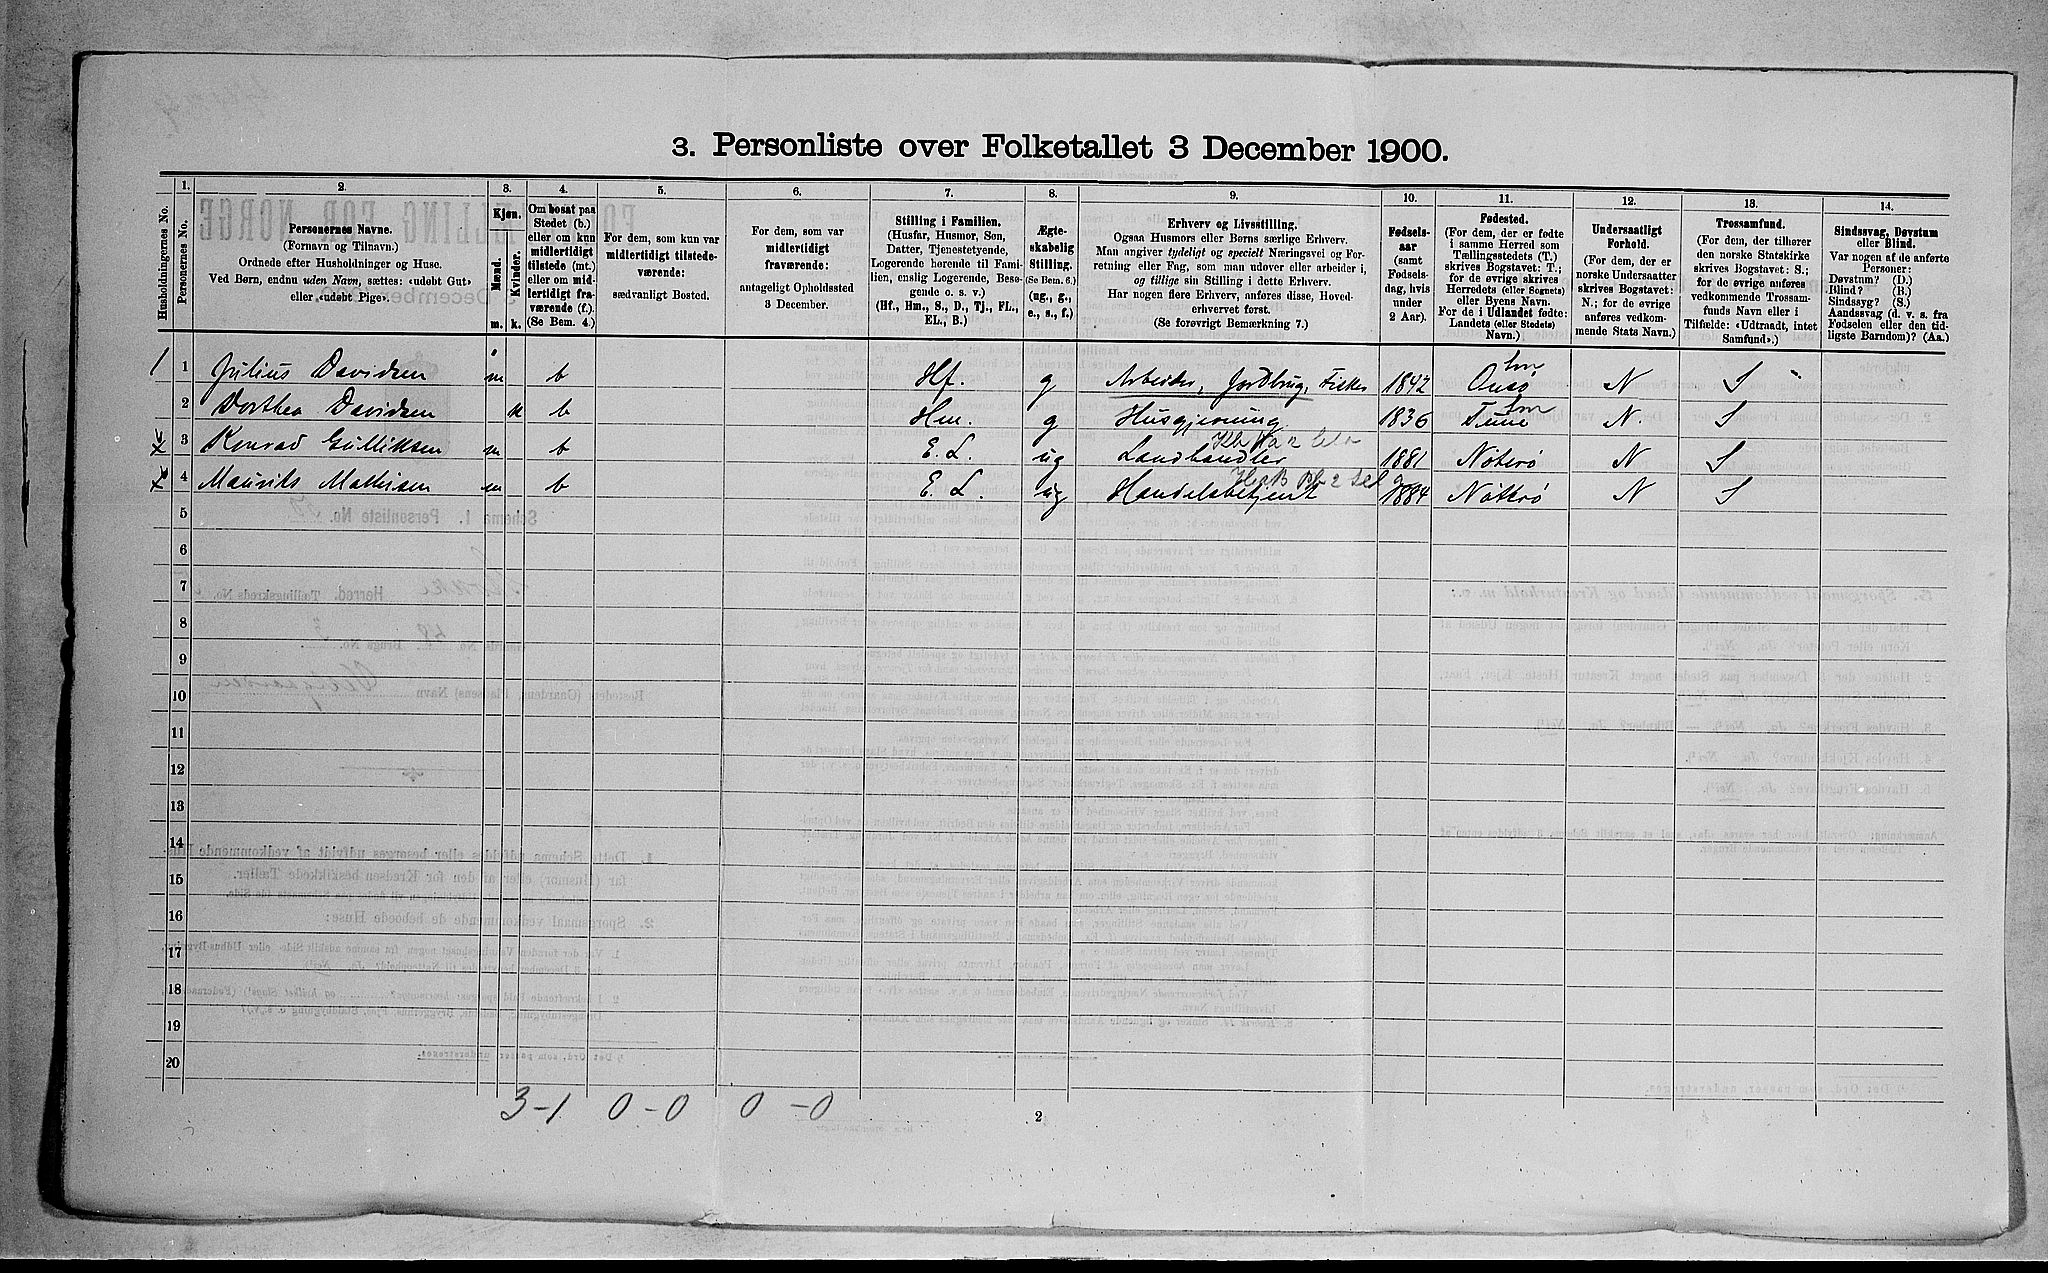 3. Personliste over Folketallet 3 December 1900.
Husholdningernes No.
1.
Personernes No.
2.
Personernes Navne.
(Fornavn og Tilnavn.)
Ordnede efter Husholdninger og Huse.
Ved Børn, endnu uden Navn, sættes: «udøbt Gut»
eller «udøbt Pige».
3.
Kjøn.
Mænd.
Kvinder.
m. k.
4.
Om bosat paa
Stedet (b.)
eller om kun
midlertidigt
tilstede (mt.)
eller om mid-
lertidigt fra-
værende (f.).
(Se Bem. 4.)
5.
For dem, som kun var
midlertidigt tilstede-
værende:
sædvanligt Bosted.
6.
For dem, som var
midlertidigt
fraværende:
antageligt Opholdssted
3 December.
7.
Stilling i Familien.
(Husfar, Husmor, Søn,
Datter, Tjenestetyende,
Logerende hørende til Fami-
lien, enslig Logerende, Besø-
gende o. s. v.)
(Hf., Hm., S., D., Tj., FL.,
EL., B.)
8.
Ægte-
skabelig
Stilling.
(Se Bem. 6.)
(ug., g.,
e., s., f.)
9.
Erhverv og Livsstilling.
Ogsaa Husmors eller Børns særlige Erhverv.
Man angiver tydeligt og specielt Næringsvei og For-
retning eller Fag, som man udøver eller arbeider i,
og tillige sin Stilling i dette Erhverv.
Har nogen flere Erhverv, anføres disse, Hoved-
erhvervet først.
(Se forøvrigt Bemærkning 7.)
10.
Fødsels-
aar
(samt
Fødsels-
dag, hvis
under
2 Aar).
11.
Fødested.
(For dem, der er fødte
i samme Herred som
Tællingsstedets (T.)
skrives Bogstavet: T.;
for de øvrige skrives
Herredets (eller Sognets)
eller Byens Navn.
For de i Udlandet fødte:
Landets (eller Stedets)
Navn.)
12.
Undersaatligt
Forhold.
(For dem, der er
norske Undersaatter
skrives Bogstavet:
N.; for de øvrige
anføres vedkom-
mende Stats Navn.)
13.
Trossamfund.
(For dem, der tilhører
den norske Statskirke
skrives Bogstavet: S.;
for de øvrige anføres
vedkommende Trossam-
funds Navn eller i
Tilfælde: «Udtraadt, intet
Samfund».)
14.
Sindssvag, Døvstum
eller Blind.
Var nogen af de anførte
Personer:
Døvstum? (D.)
Blind? (B.)
Sindssyg? (S.)
Aandssvag (d. v. s. fra
Fødselen eller den tid-
ligste Barndom)? (Aa.)
1 1 Julius Davidsen m b Hf. g Arbeider, Jordbrug, Fisker 1842 Onsø N S
2 Dorthea Davidsen k b Hm. g Husgjerning 1836 Tune N. S
3 Konrad Gulliksen m b E. L. ug Landhandler 1881 Nøterø N S
4 Maurits Mathisen m b E. L. ug Handelsbetjent 1884 Nøtterø N S
5
6
7
8
9
10
11
12
13
14
15
16
17
18
19
20
3-1 0-0 0-0
2